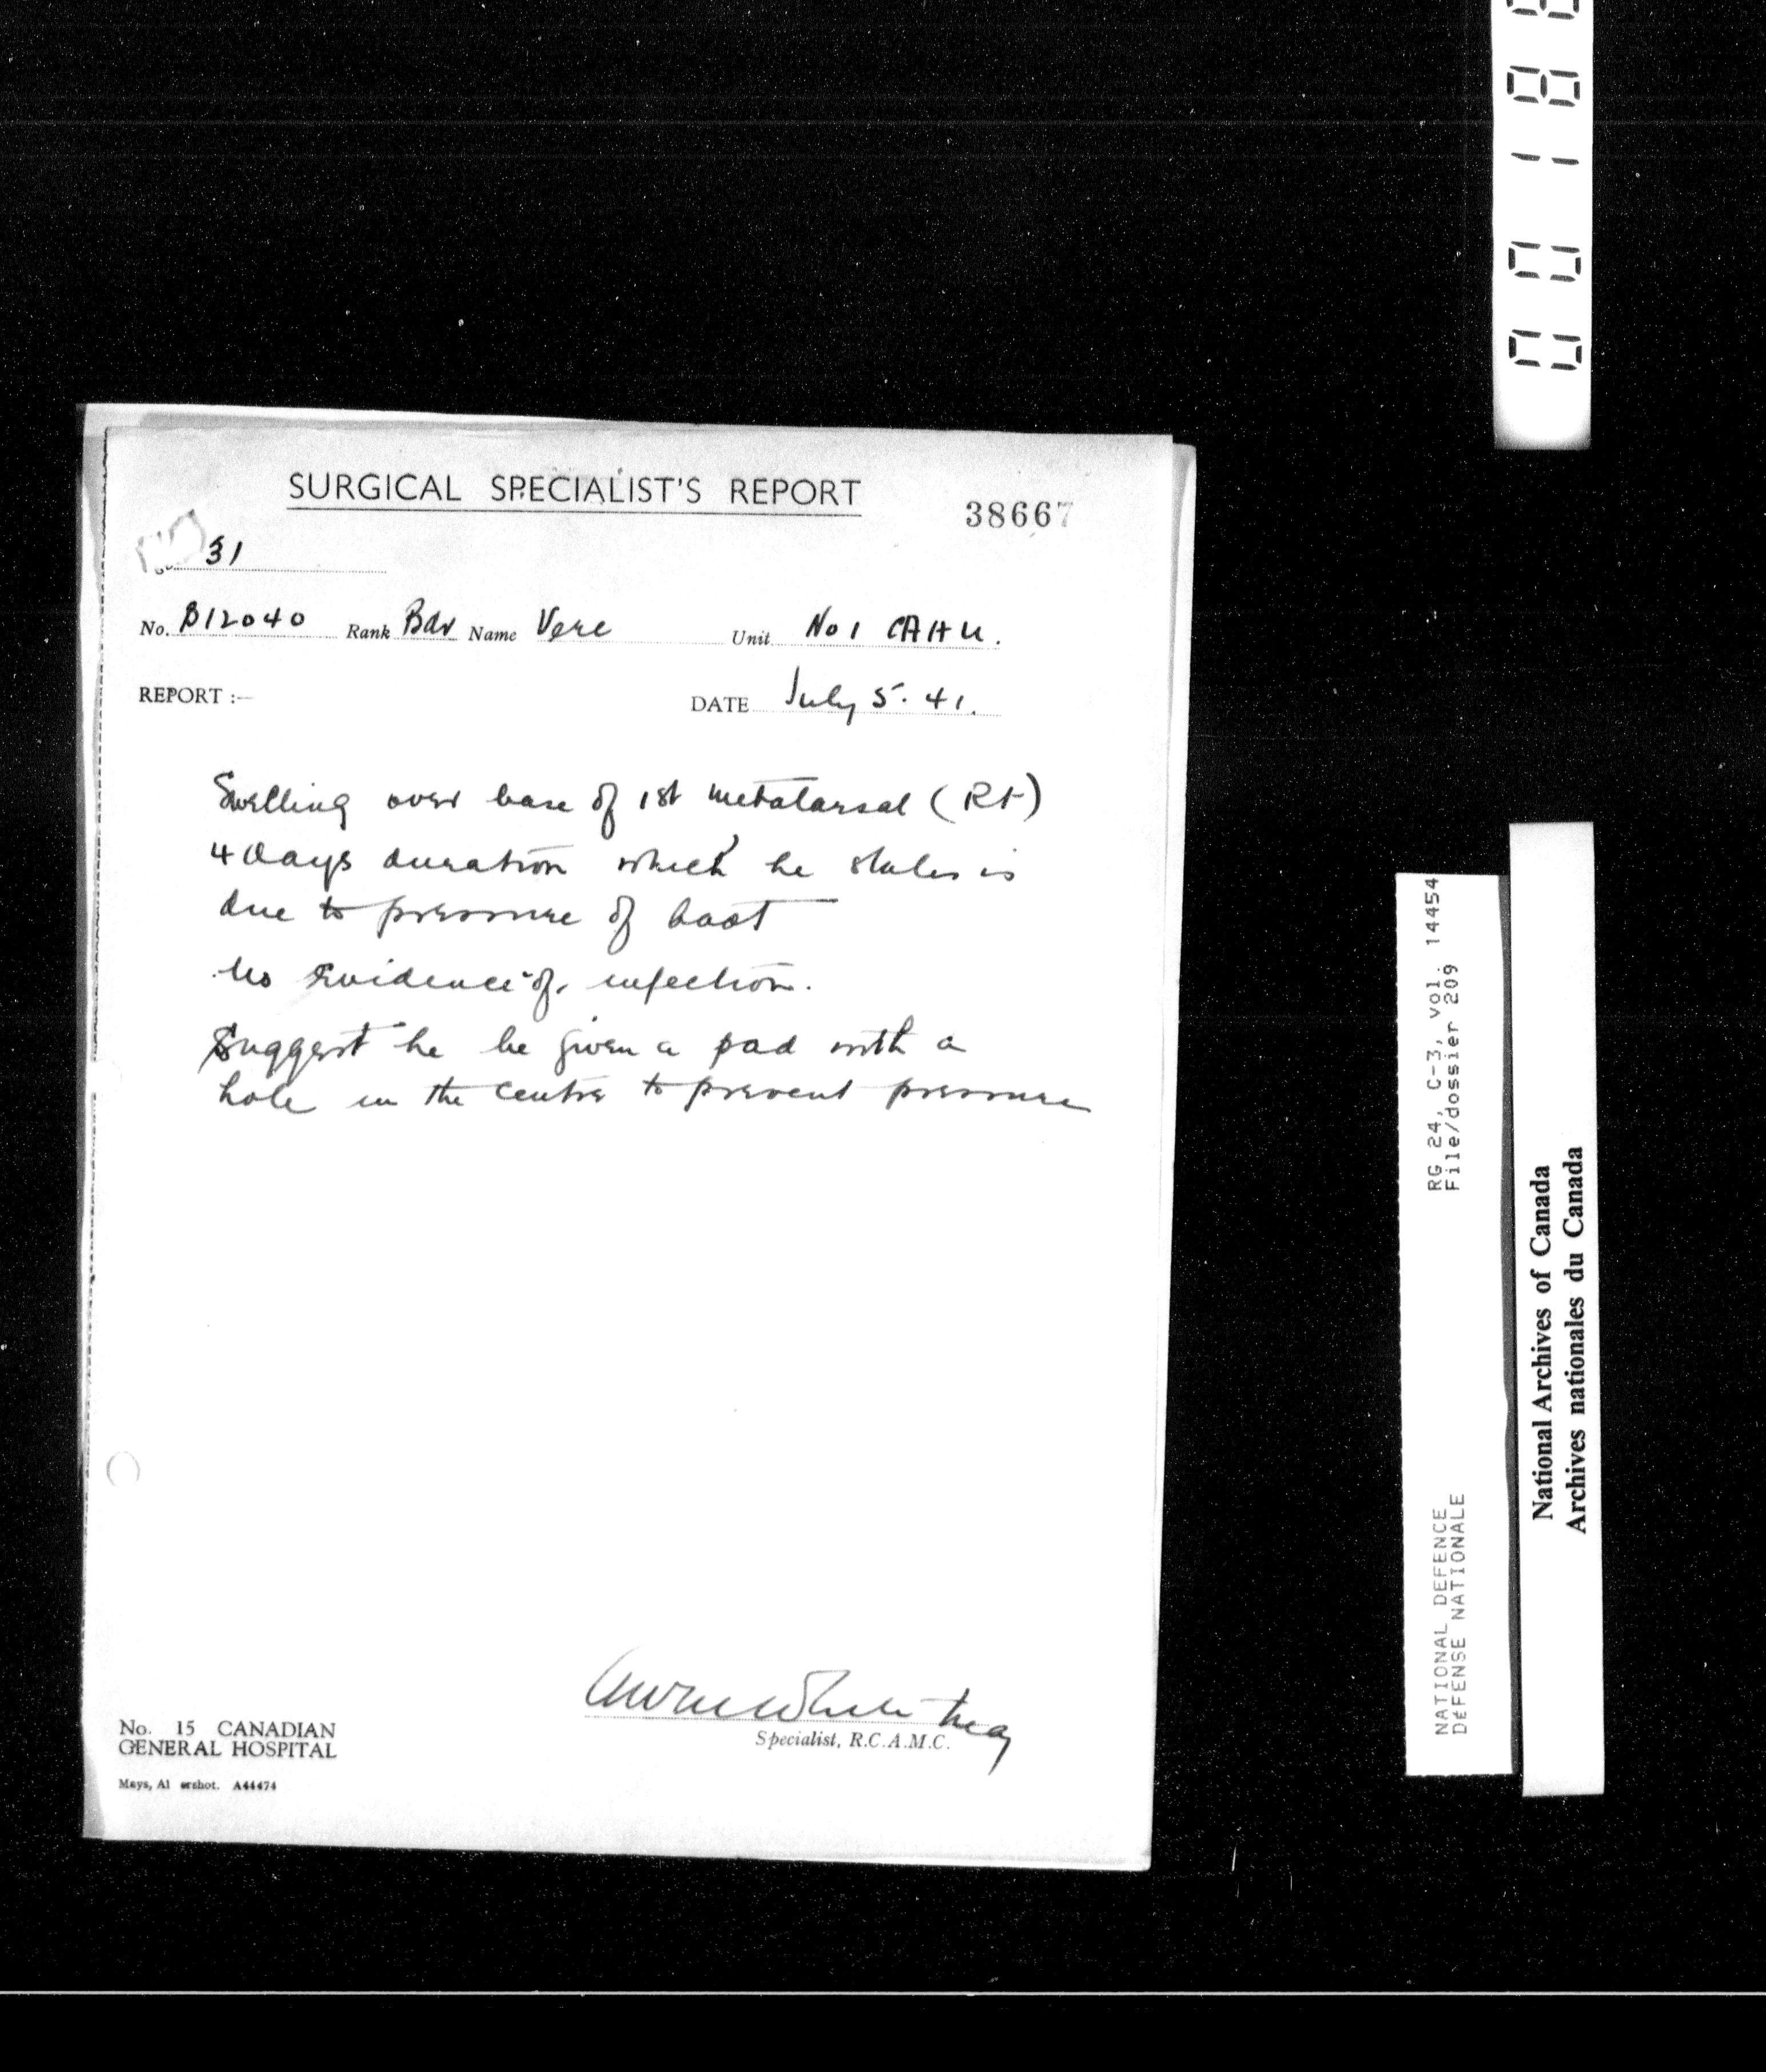 SURGICAL SPECIALIST'S REPORT
38667
31
No. B12040 Rank Bdr Name Vere Unit No 1 CAHU.
REPORT :— DATE July 5. 41.
Swelling over base of 1st metatarsal (Rt)
4 Days duration which he states is
due to pressure of boot
No Evidence of infection.
Suggest he be given a pad with a
hole in the centre to prevent pressure
Specialist, R.C.A.M.C.
No. 15 CANADIAN
GENERAL HOSPITAL
Mays, Al ershot. A44474
NATIONAL DEFENCE RG 24, C-3, vol. 14454
DÉFENSE NATIONALE File/dossier 209
National Archives of Canada
Archives nationales du Canada